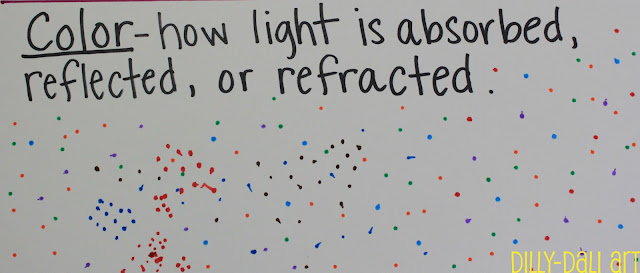 Color-how light is absorbed,
reflected, or refracted.
DILLY-DALI ART